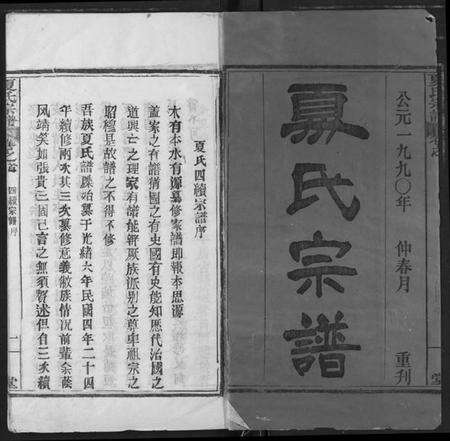 公元一九九〇年 仲春月 重刊
夏氏宗譜
夏氏四續宗譜序
木有本水有源纂修家譜即報本思源
蓋家之有譜猶國之有史國有史能知歷代治國之
道興亡之理家有譜能辨眾族派別之尊卑祖宗之
昭穆是故譜之不得不修
吾族夏氏譜牒始纂于光緒六年民國四年二十四
年續修兩次其三次纂修意義徽族情況前輩余蔭
風靖矣如張貴三個已言之無須贅述但自三次續
夏氏宗譜 卷之首 四續宗譜序 一 堂